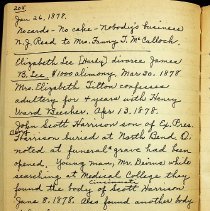 208.
Jan 26, 1878.
No cards - No cake - Nobody's business
N.J. Reed to Mrs. Fanny T. McCulloch.
Elizabeth Lee (Hurly) divorce James
B. Lee $1000 alimony Mar 30. 1878.
Mrs. Elizabeth Tilton confesses
adultery for 4 years with Henry
Ward Beecher. Apr 13. 1878.
John Scott Harrison son of Ex. Pres.
Harrison buried at North Bend. O.
noted at funeral grave had been
opened. Young man, Mr. Devins while
searching at Medical College they
found the body of Scott Harrison
June 8. 1878. Also found another body